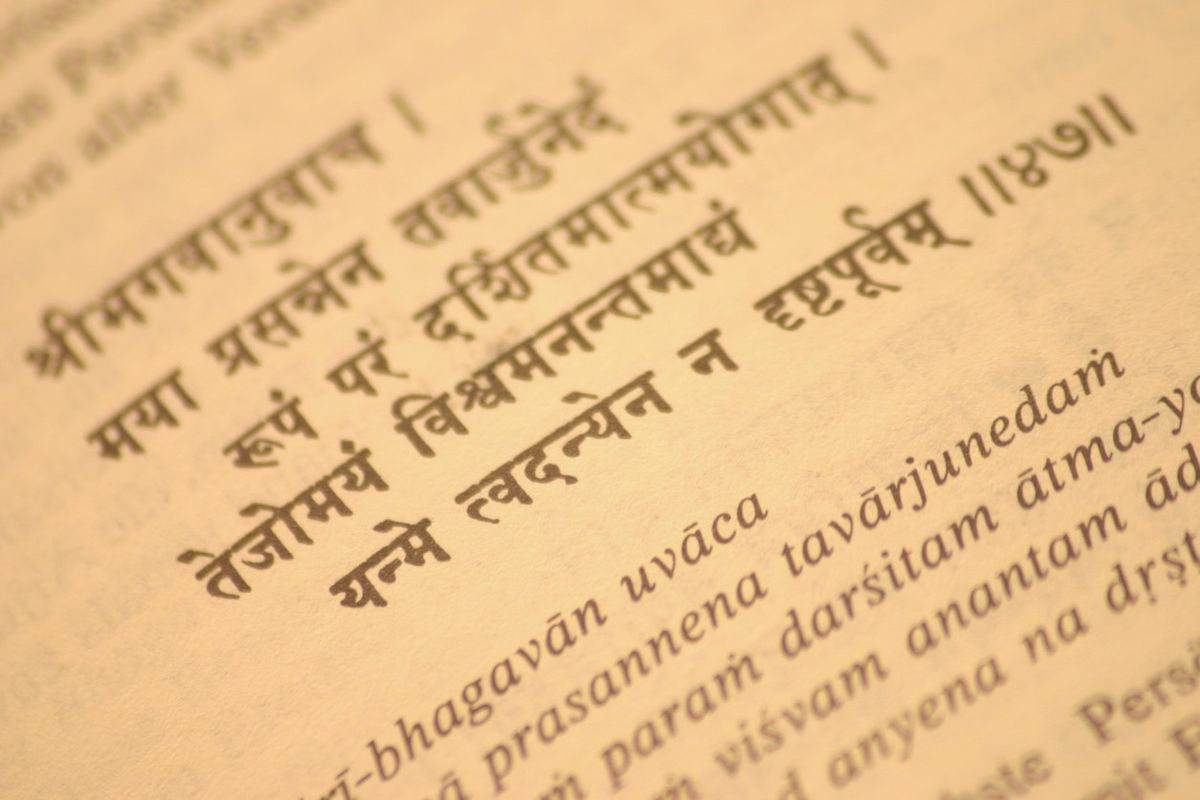 on aller
श्रीभगवानुवाच ।
मया प्रसन्नेन तवार्जुनेदं
रूपं परं दर्शितमात्मयोगात् ।
तेजोमयं विश्वमनन्तमाद्यं
यन्मे त्वदन्येन न दृष्टपूर्वम् ॥४७॥
rī-bhagavān uvāca
ā prasannena tavārjunedaṁ
ṁ paraṁ darśitam ātma-yo
ṁ viśvam anantam ād
d anyena na dṛṣṭ